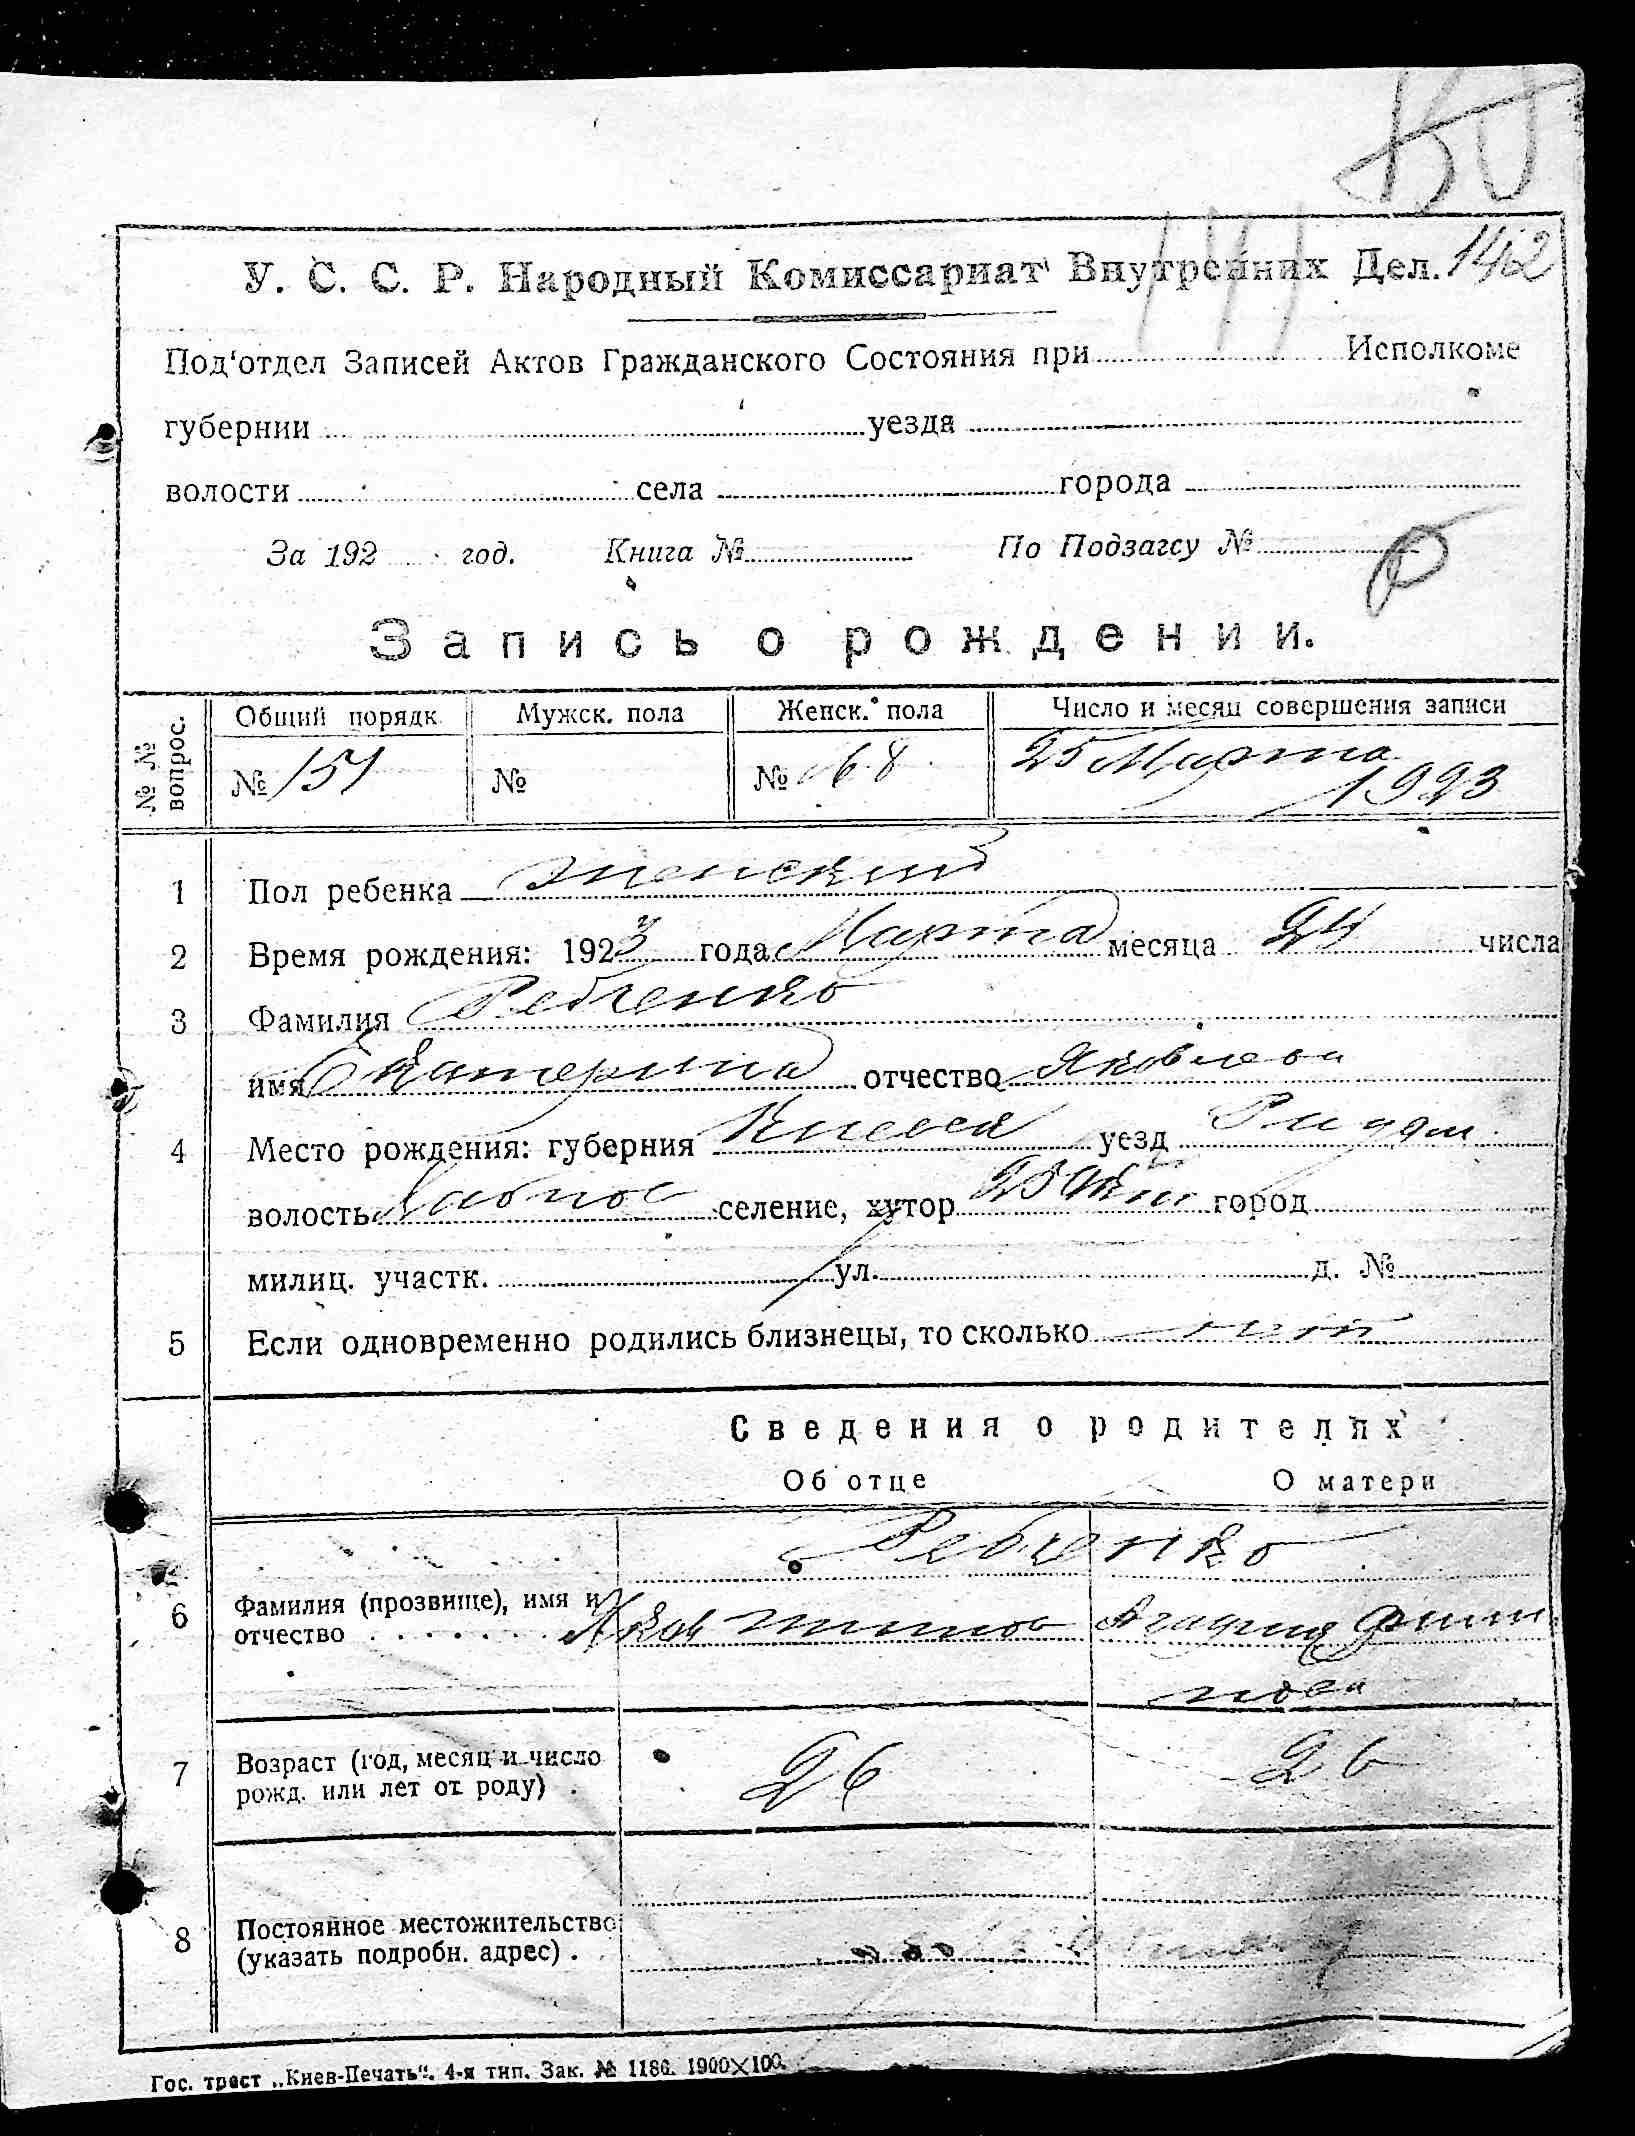 У. С. С. Р. Народный Комиссариат Внутренних Дел. 1462
Под'отдел Записей Актов Гражданского Состояния при Исполкоме
губернии уезда
волости села города
За 192 год. Книга № По Подзагсу №
Запись о рождении.
№ № вопрос. Общий порядк. Мужск. пола Женск. пола Число и месяц совершения записи
№ 151 № № 68 25 Марта
1923
1 Пол ребенка женский
2 Время рождения: 1923 года Марта месяца 24 числа
3 Фамилия Рябченко
имя Екатерина отчество Яковлева
4 Место рождения: губерния Киевск уезд
волость селение, хутор город
милиц. участк. ул. д. №
5 Если одновременно родились близнецы, то сколько нет
Сведения о родителях
Об отце О матери
Рябченко
6 Фамилия (прозвище), имя и
отчество Яков
7 Возраст (год, месяц и число
рожд. или лет от роду) . 26 26
8 Постоянное местожительство
(указать подробн. адрес) .
Гос. трест „Киев-Печать“. 4-я тип. Зак. № 1186. 1900×100.